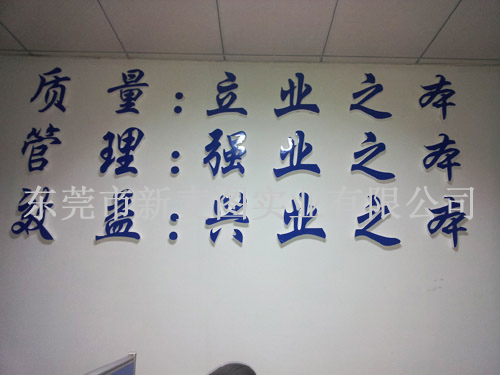 质量：立业之本
管理：强业之本
效益：兴业之本
东莞市新
实业有限公司